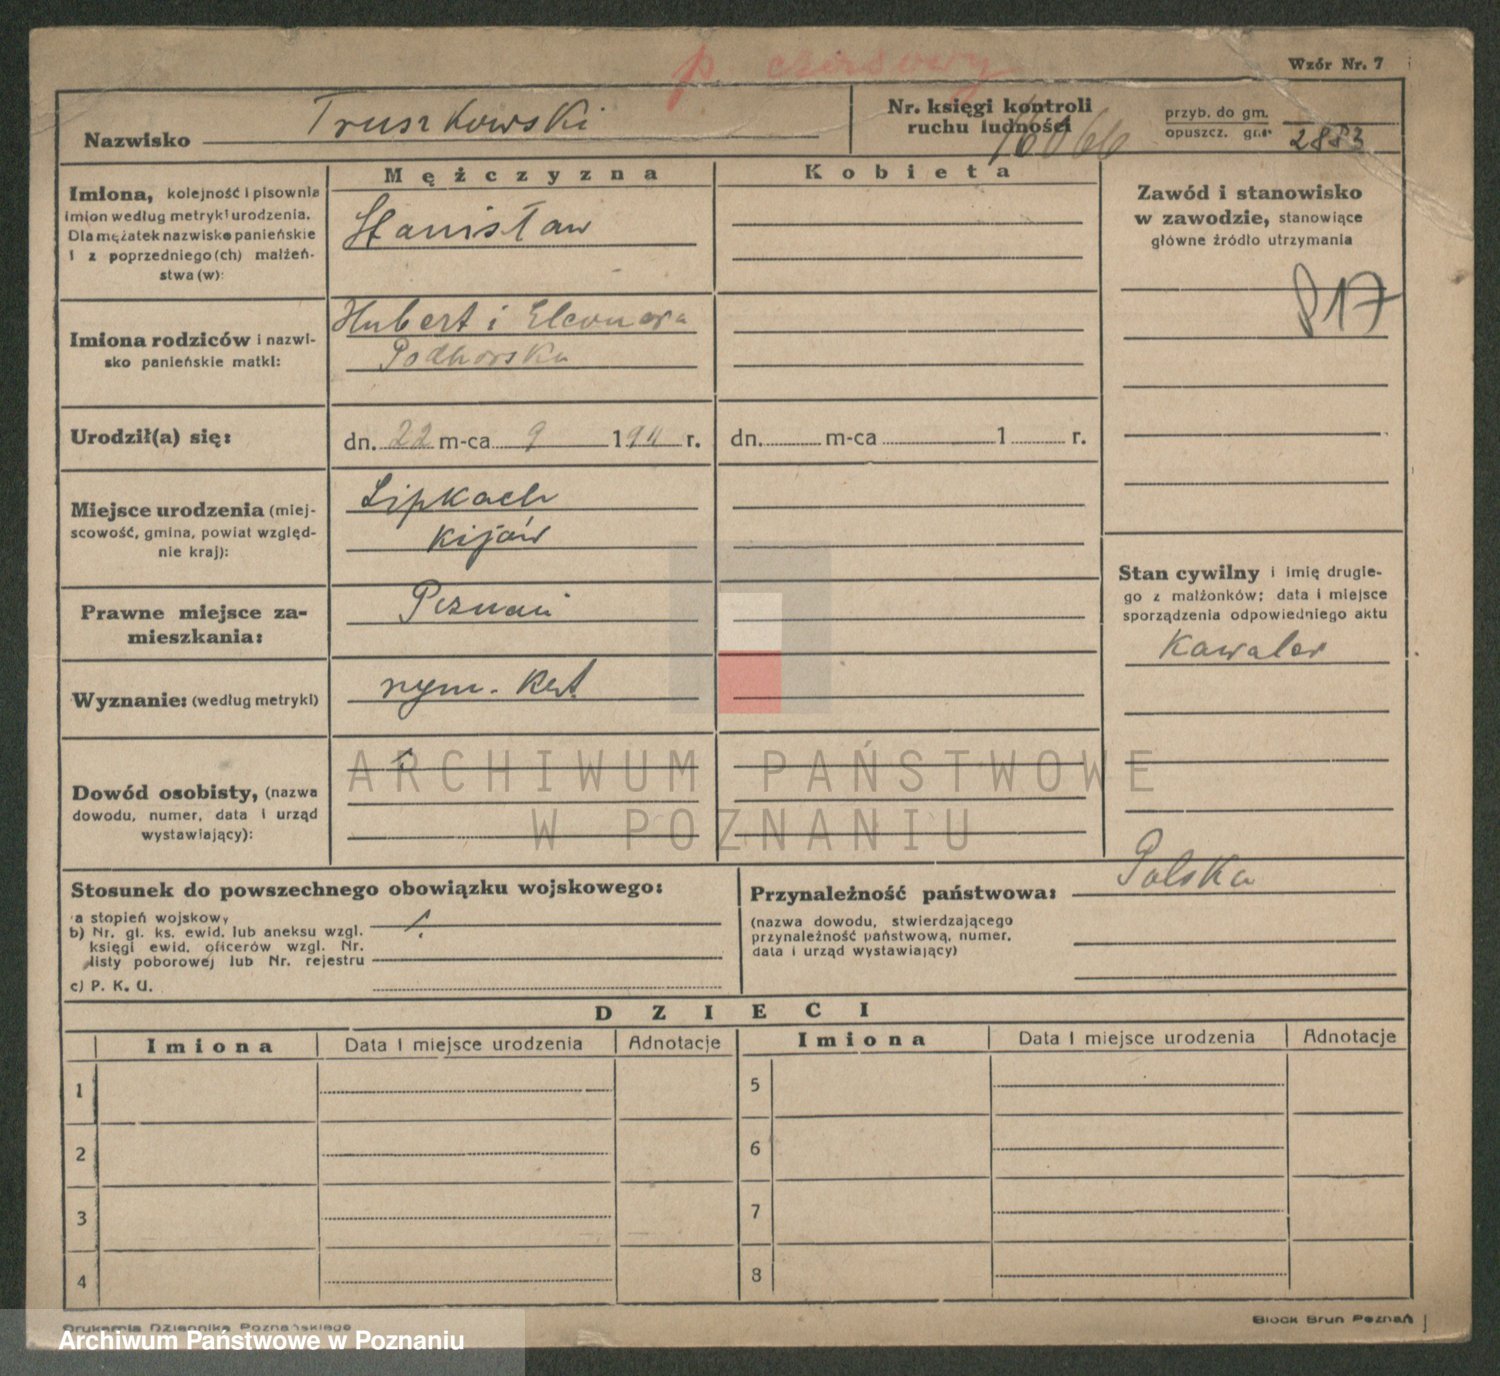 p. czasowy
Wzór Nr. 7
Nazwisko Truszkowski
Nr. księgi kontroli
ruchu ludności
przyb. do gm.
opuszcz. gm. 2883
Imiona, kolejność i pisownia
imion według metryki urodzenia.
Dla mężatek nazwisko panieńskie
i z poprzedniego(ch) małżeń-
stwa(w):
Mężczyzna
Stanisław
Kobieta
Zawód i stanowisko
w zawodzie, stanowiące
główne źródło utrzymania
817
Imiona rodziców i nazwi-
sko panieńskie matki:
Hubert i Eleonora
Podhorska
Urodził(a) się:
dn. 22 m-ca 9 1911 r.
dn. m-ca 1 r.
Miejsce urodzenia (miej-
scowość, gmina, powiat względ-
nie kraj):
Lipkach
Kijów
Prawne miejsce za-
mieszkania:
Poznań
Stan cywilny i imię drugie-
go z małżonków; data i miejsce
sporządzenia odpowiedniego aktu
Kawaler
Wyznanie: (według metryki)
rzym. kat.
Dowód osobisty, (nazwa
dowodu, numer, data i urząd
wystawiający):
ARCHIWUM PAŃSTWOWE
W POZNANIU
Stosunek do powszechnego obowiązku wojskowego:
a stopień wojskowy
b) Nr. gł. ks. ewid. lub aneksu wzgl.
księgi ewid. oficerów wzgl. Nr.
listy poborowej lub Nr. rejestru
c) P. K. U.
Przynależność państwowa: Polska
(nazwa dowodu, stwierdzającego
przynależność państwową, numer,
data i urząd wystawiający)
DZIECI
Imiona Data i miejsce urodzenia Adnotacje Imiona Data i miejsce urodzenia Adnotacje
1 5
2 6
3 7
4 8
Drukarnia Dziennika Poznańskiego
Block Brun Poznań
Archiwum Państwowe w Poznaniu